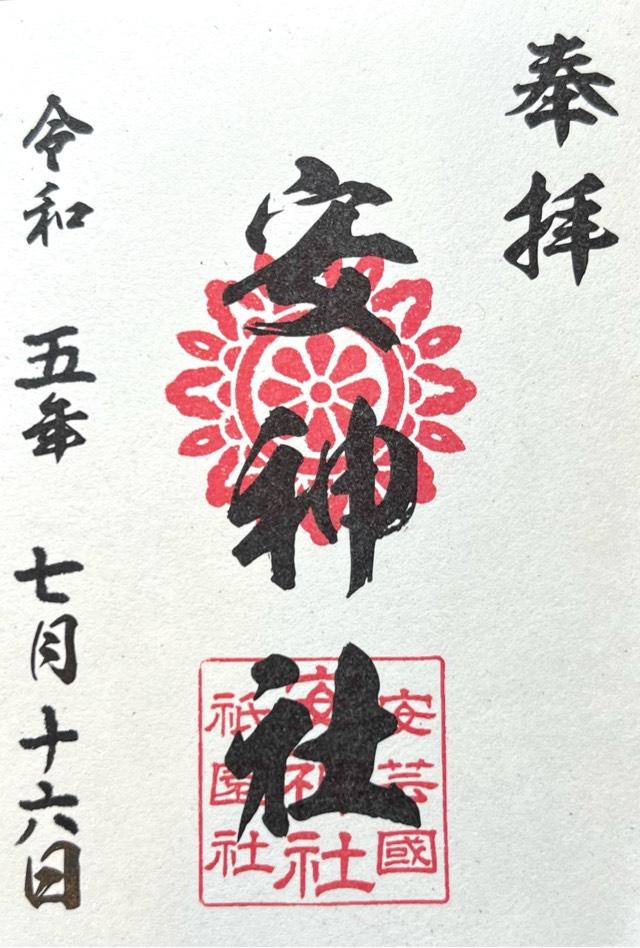 奉拝
安神社
安芸國
安神社
祇園社
令和五年七月十六日